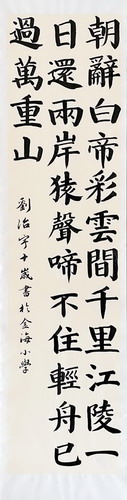 朝辭白帝彩雲間千里江陵一
日還兩岸猿聲啼不住輕舟已
過萬重山
劉治寧十歲書於金海小學